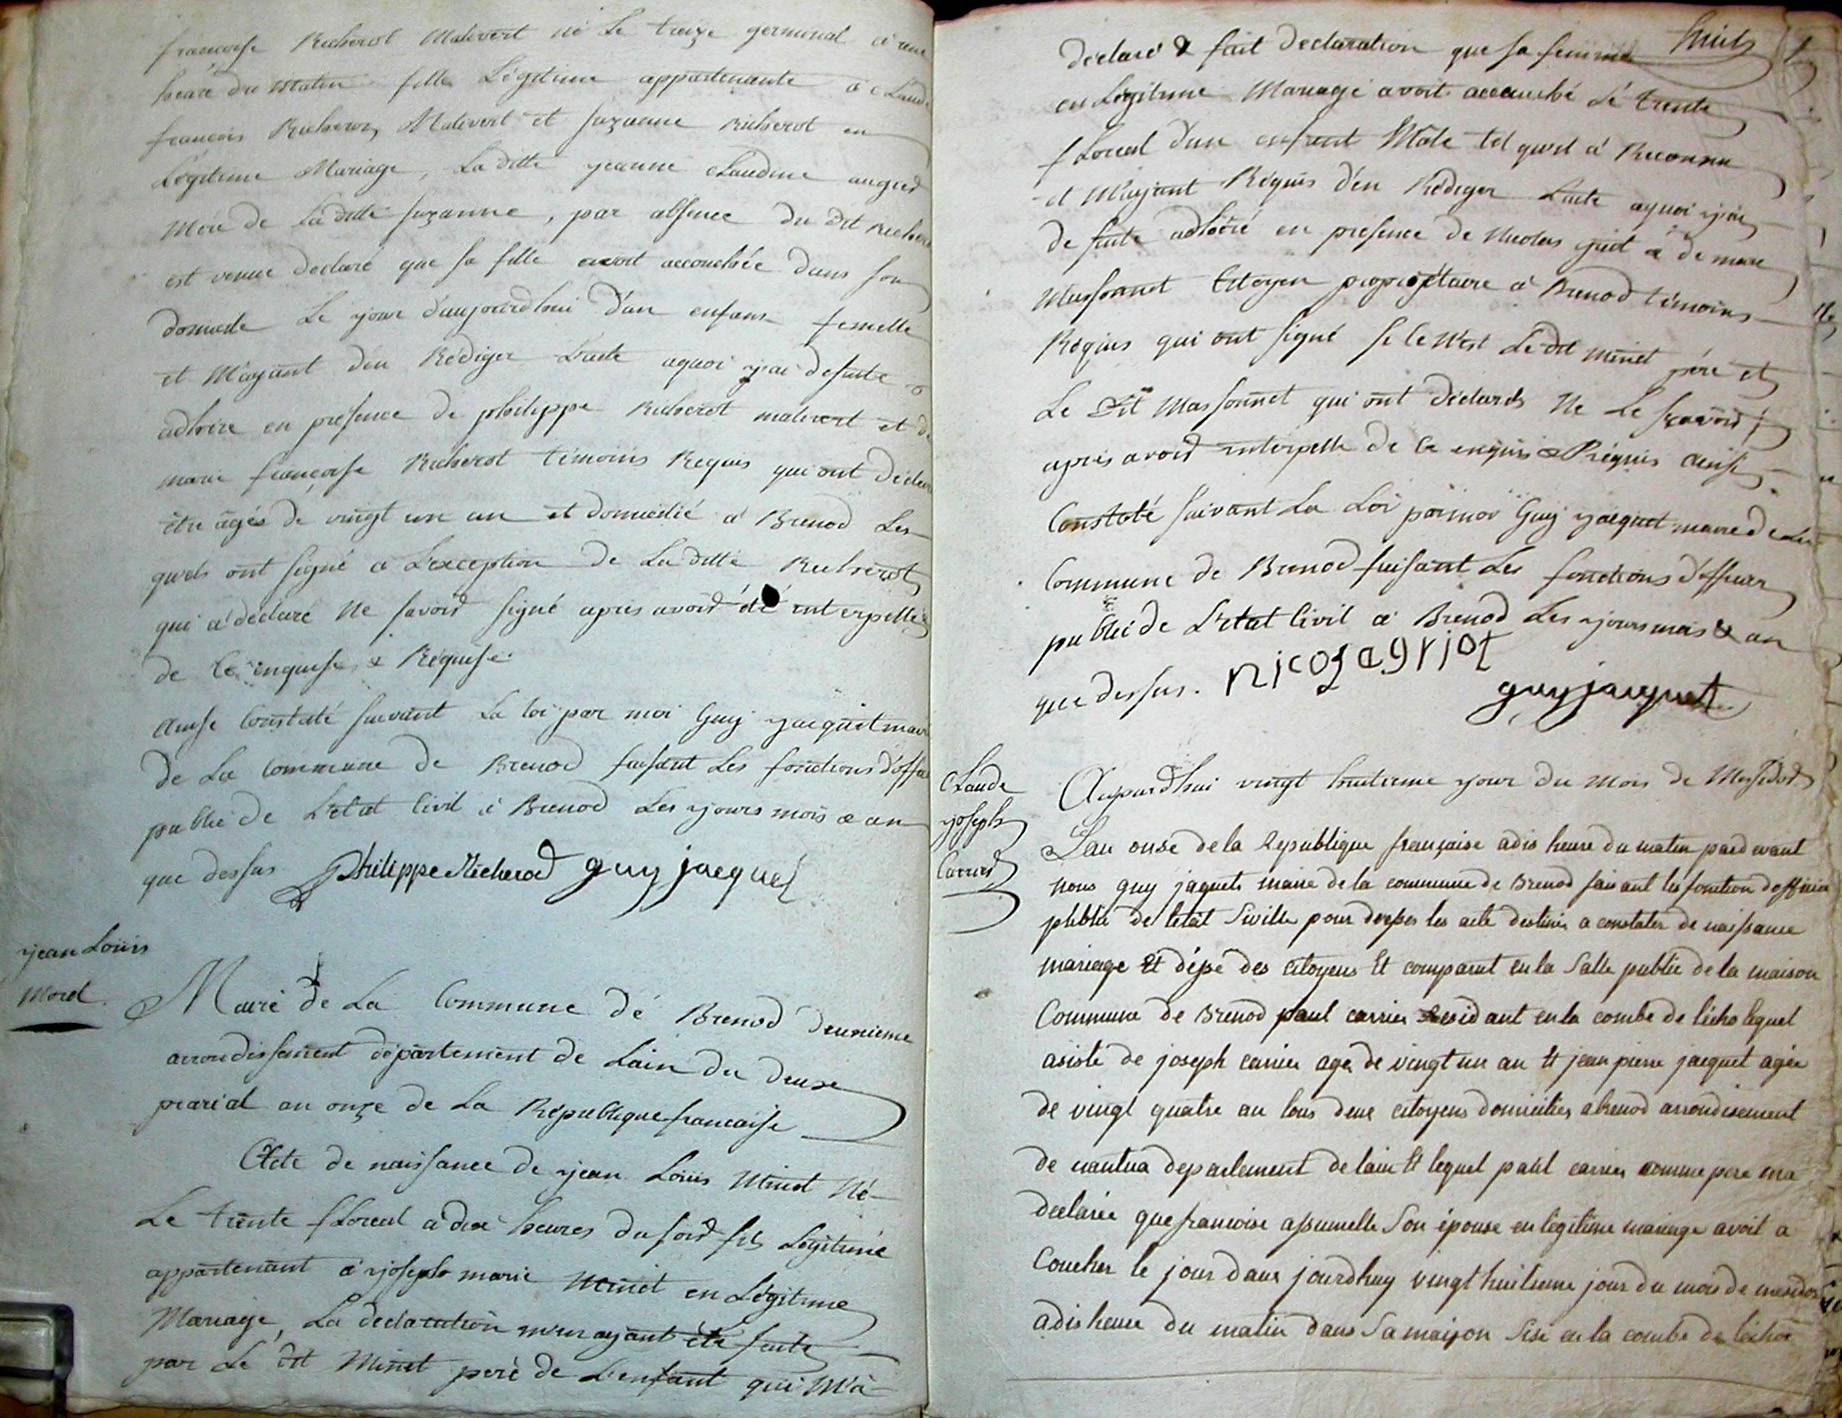 francoise Richerot Malivert né Le treize germinal à une
heure du Matin fille Légitime appartenante à Claude
francois Richerot Malivert et suzanne Richerot en
Légitime Mariage, La ditte yeanne claudine
Mére de La ditte suzanne, par absence du dit Richerot
est venue declaré que sa fille avoit accouchée dans son
domicile Le yjour d'aujourd'hui d'un enfant femelle
et M'ayant d'en Rédiger L'acte aquoi yjai desuite
adhére en présence de philippe Richerot malivert et de
marie françoise Richerot témoins Requis qui ont déclaré
être âgés de vingt un an et domicilié à Brenod Les
quels ont signé à L'exception de La ditte Richerot
qui à déclaré Ne savoir signé apres avoir été interpellée
de ce enquise & Réquise.
ainsi Constaté suivant La loi par moi Guy yjacquet maire
de La Commune de Brenod faisant Les fonctions d'officier
public de L'etat Civil à Brenod Les yjours mois & an
que dessus Philippe Richerod guy jacquet
yjean Louis
Morel
Maire de La Commune dé Brenod deuxieme
arrondissement département de Lain du deuxe
prarial an onze de La République francaise
Acte de naissance de yjean Louis Minet Né
Le trente floreal a dix heures du soir fils Légitime
appartenant à yjoseph marie Minet en Légitime
Mariage, La declaration m'en ayant été faite
par Le dit Minet peré de L'enfant qui M'à
huit
déclaré & fait déclaration que sa femme
en Légitime Mariage avoit accouché Lé trente
floreal d'un enfant Mâle tel quil à Reconnu
et M'ayant Réquis d'en Rédiger L'acte aquoi yjai
de suite adhéré en présence de Nicolas
Massonnet Citoyen propriétaire à Brenod témoins
Réquis qui ont signé si ce N'est Le dit Minet pére et
Le dit Massonnet qui ont déclarés Ne Le sçavoir,
aprés avoir interpellé de ce enquis & Réquis ainsi
Constaté suivant La Loi par moi Guy yjacquet maire de La
Commune de Brenod faisant Les fonctions d'officier
public de L'etat Civil à Brenod Les yjours mois & an
que dessus. nicolagriot
guy jacquet
Claude
yjoseph
Carrier
Aujourd'hui vingt huitieme yjour du mois de Messidor
L'an onse de la Republique française adis heure du matin pardevant
nous guy jaquet maire de la commune de Brenod faisant les fonction dofficier
publié de létat Siville pour les acte destinés a constater de naissance
mariage Et désé des citoyens Et comparut en la Salle publié de la maison
Commune de Brenod paul carrier Residant en la combe de lécho lequel
asisté de joseph carrier agé de vingt un an Et jean pierre jacquet agée
de vingt quatre an tous deux citoyens domicilies abrenod arrondisement
de nantua departement de lain Et lequel paul carrier comme pere ma
declarée que francoise son épouse en legitime mariage avoit a
Coucher le jour daux jourdhuy vingt huitieme jour du mois de messidor
adis heure du matin dans Sa maison Sise en la combe de lécho